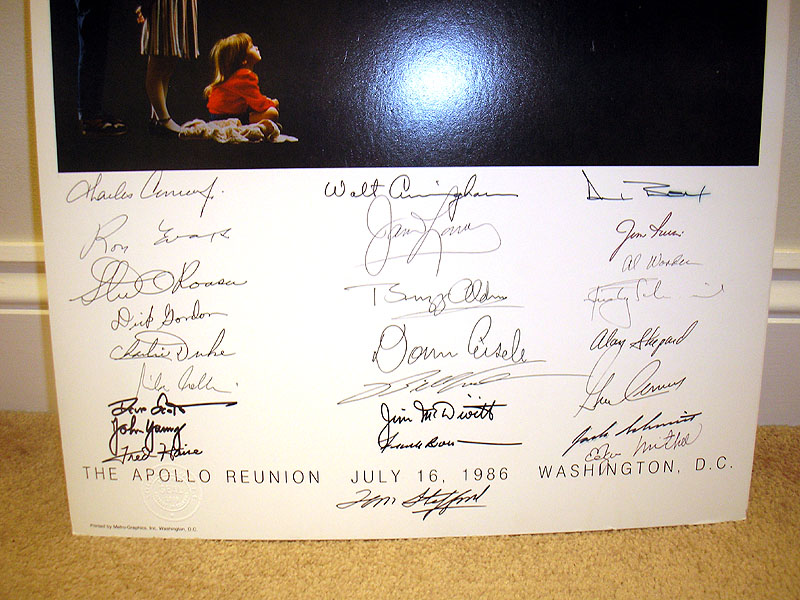 Charles
Ron Evans
Stu Roosa
Dick Gordon
Charlie Duke
Dave Scott
John Young
Fred Haise
Walt Cunningham
Jim
Buzz Aldrin
Donn Eisele
Jim McDivitt
Frank Borman
Jim Irwin
Al Worden
Alan Shepard
Gene Cernan
Jack Schmitt
Edgar Mitchell
THE APOLLO REUNION JULY 16, 1986 WASHINGTON, D.C.
Tom Stafford
Printed by Metro-Graphics, Inc. Washington, D.C.